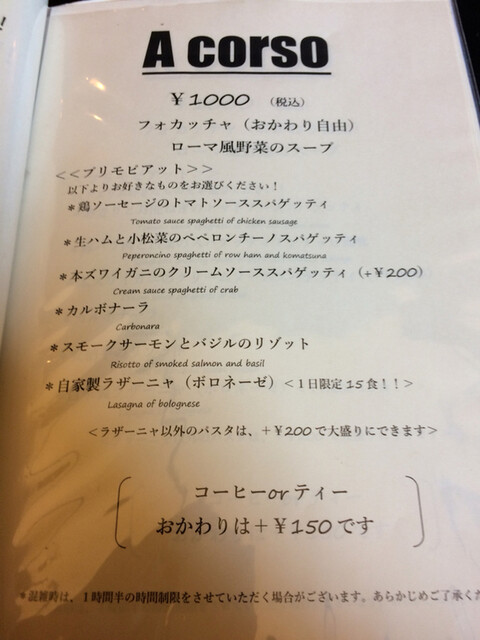 A corso
￥1000 （税込）
フォカッチャ（おかわり自由）
ローマ風野菜のスープ
＜＜プリモピアット＞＞
以下よりお好きなものをお選びください！
＊鶏ソーセージのトマトソーススパゲッティ
Tomato sauce spaghetti of chicken sausage
＊生ハムと小松菜のペペロンチーノスパゲッティ
Peperoncino spaghetti of row ham and komatsuna
＊本ズワイガニのクリームソーススパゲッティ（+￥200）
Cream sauce spaghetti of crab
＊カルボナーラ
Carbonara
＊スモークサーモンとバジルのリゾット
Risotto of smoked salmon and basil
＊自家製ラザーニャ（ボロネーゼ）＜１日限定15食！！＞
Lasagna of bolognese
＜ラザーニャ以外のパスタは、＋￥200で大盛りにできます＞
コーヒーorティー
おかわりは＋￥150です
＊混雑時は、１時間半の時間制限をさせていただく場合がございます。あらかじめご了承くだ